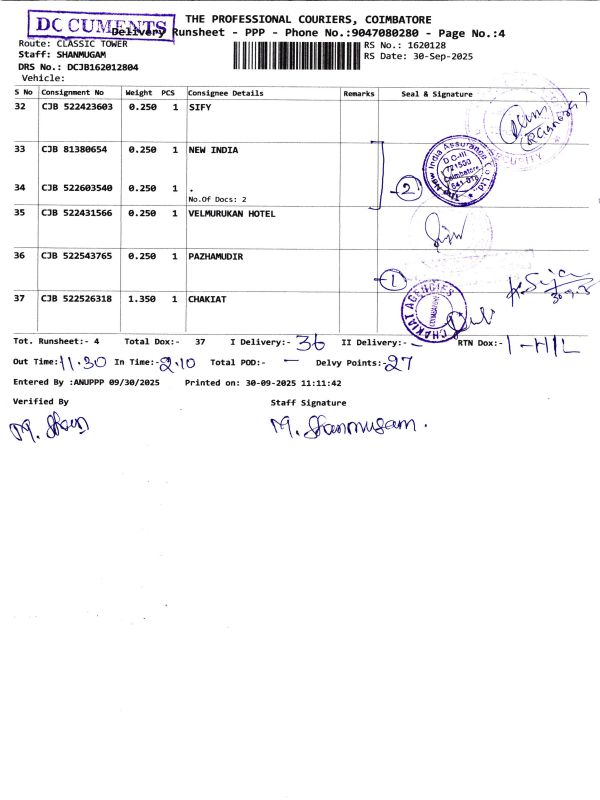 DOCUMENTS
THE PROFESSIONAL COURIERS, COIMBATORE
Delivery Runsheet - PPP - Phone No.:9047080280 - Page No.:4
Route: CLASSIC TOWER
RS No.: 1620128
Staff: SHANMUGAM
RS Date: 30-Sep-2025
DRS No.: DCJB162012804
Vehicle:
S No Consignment No Weight PCS Consignee Details Remarks Seal & Signature
32 CJB 522423603 0.250 1 SIFY
33 CJB 81380654 0.250 1 NEW INDIA
The New India Assurance Co Ltd
D C-III
721500
Coimbatore
2
34 CJB 522603540 0.250 1 .
No.Of Docs: 2
35 CJB 522431566 0.250 1 VELMURUKAN HOTEL
36 CJB 522543765 0.250 1 PAZHAMUDIR
1
37 CJB 522526318 1.350 1 CHAKIAT
CHAKIAT AGENCIES
Tot. Runsheet:- 4 Total Dox:- 37 I Delivery:- 36 II Delivery:- - RTN Dox:- 1-HIL
Out Time:- 11.30 In Time:- 2.10 Total POD:- - Delvy Points:- 27
Entered By :ANUPPP 09/30/2025 Printed on: 30-09-2025 11:11:42
Verified By Staff Signature
M. Shan M. Shanmugam.